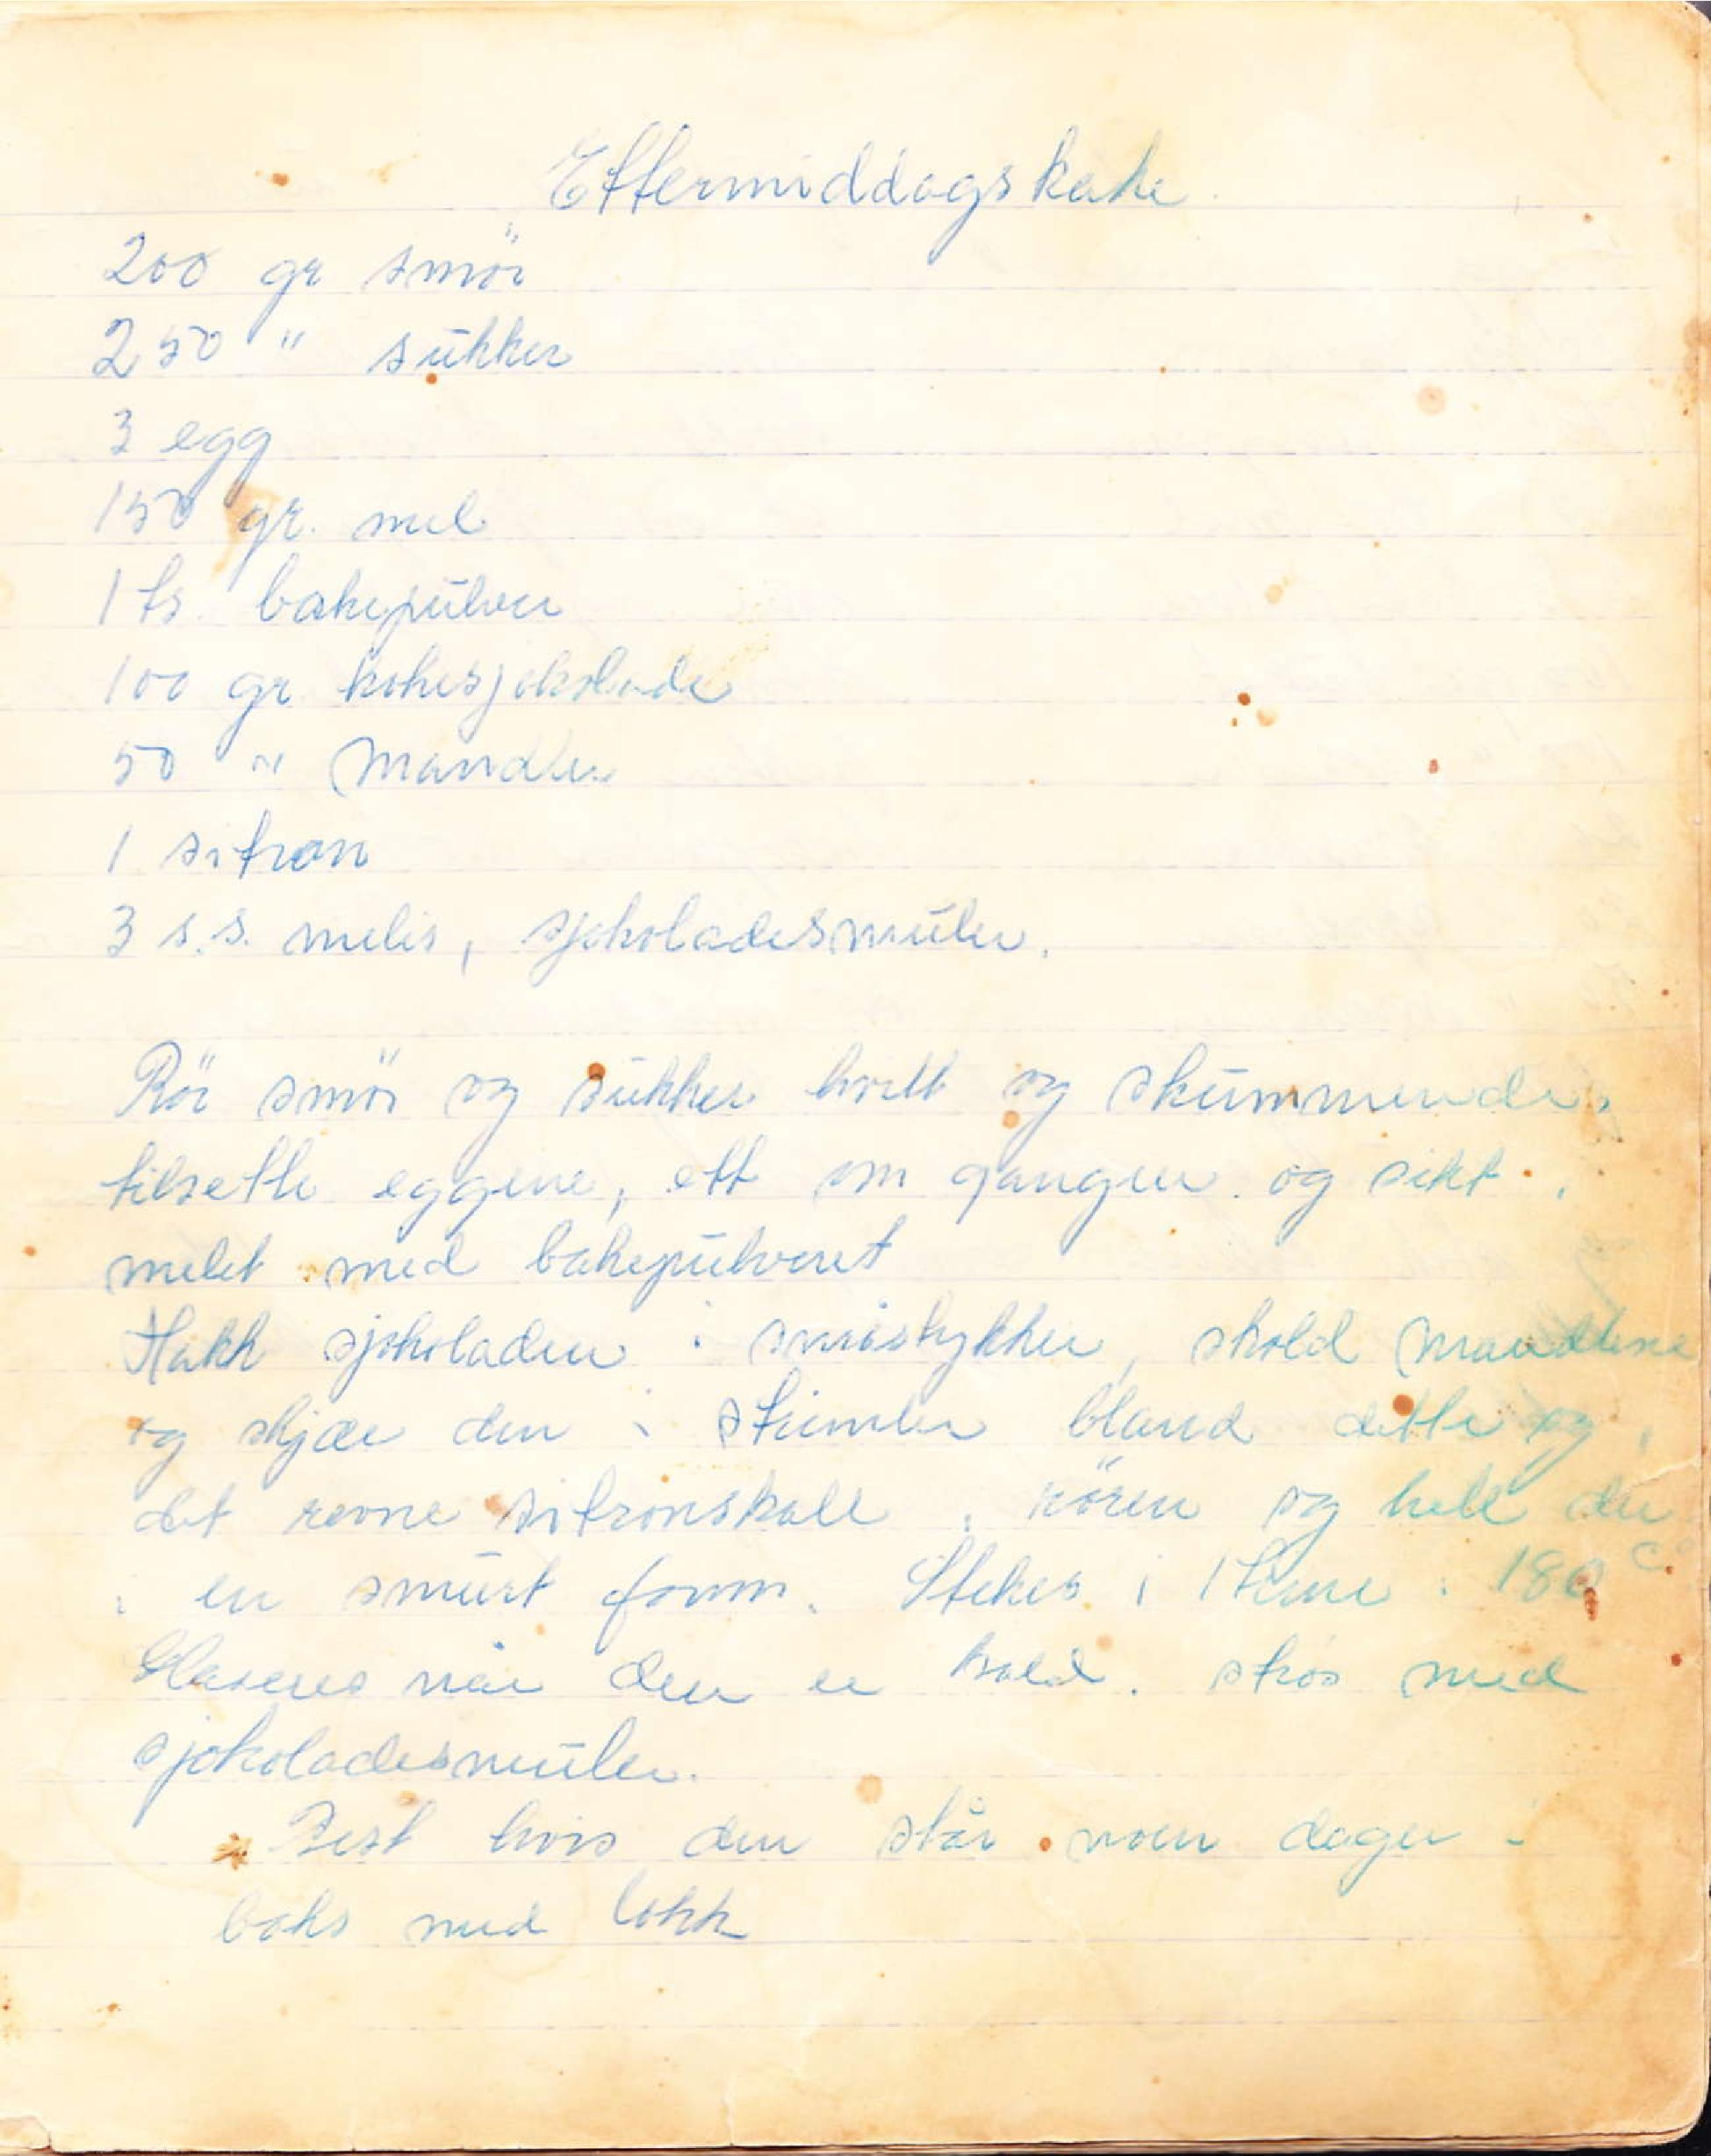 Eftermiddagskake
200 gr smör
250 " sukker
3 egg
150 gr. mel
1 ts. bakepulver
100 gr kokesjokolade
50 " Mandler
1 sitron
3 s.s. melis, sjokoladesmuler.
Rör smör og sukker hvitt og skummende,
tilsette eggene, ett om gangen og sikt i
melet med bakepulveret
Hakk sjokoladen i småstykker, skold mandlene
og skjær den i strimler bland dette og
det revne sitronskall i rören og hell den
i en smurt form. Stekes i 1 time i 180 C°
Glaseres når den er kald. strös med
sjokoladesmuler.
Best hvis den står noen dager i
boks med lokk